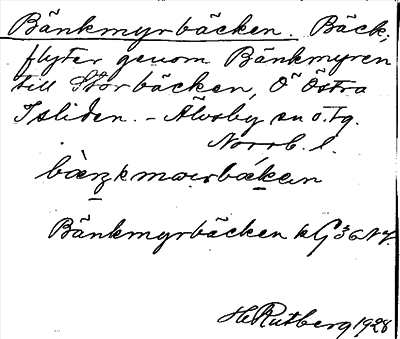 Bänkmyrbäcken. Bäck;
flyter genom Bänkmyren
till Storbäcken, Ö Östra
Isliden. – Älvsby sn o. tg.
Norrb. l.
Bänkmyrbäcken k G 3 a NV.
H Rutberg 1928